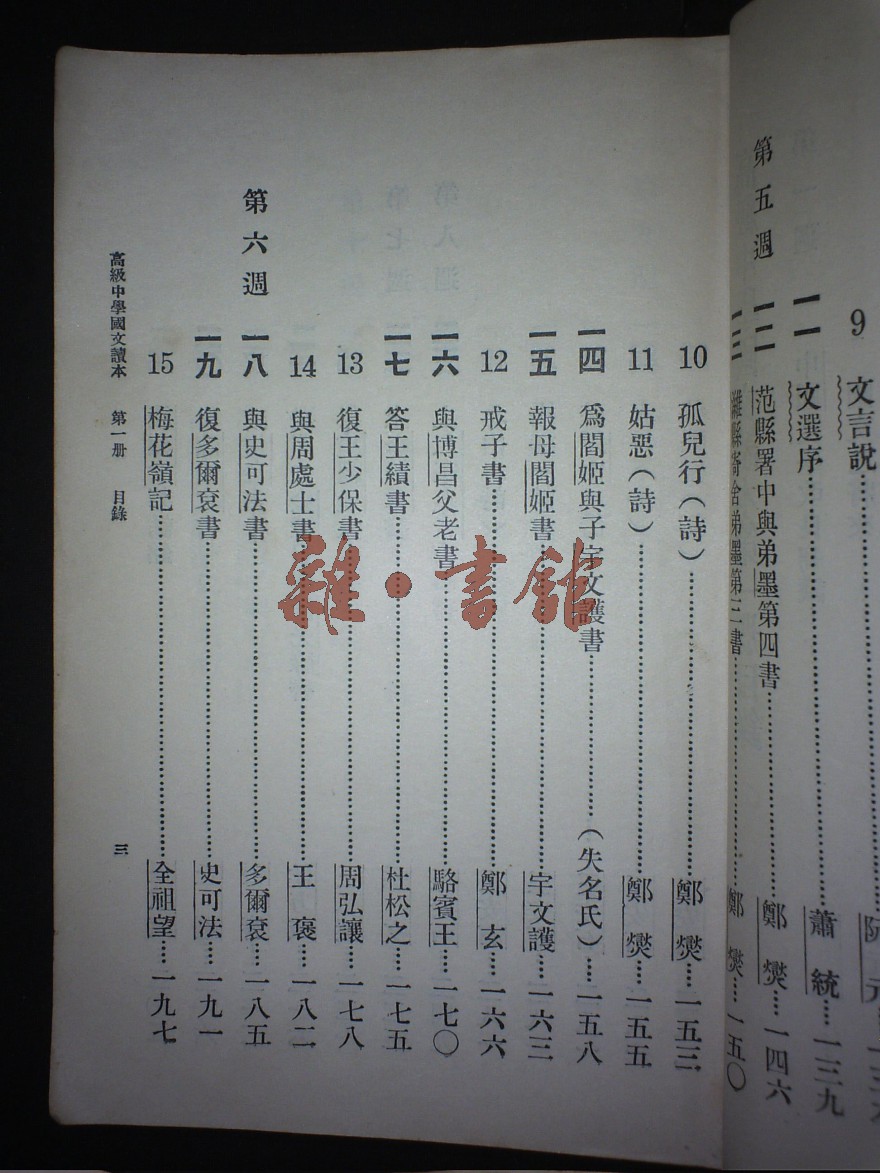 9 文言說 阮元
一一 文選序 蕭統 一三九
第五週
一二 范縣署中與弟墨第四書 鄭燮 一四六
一三 濰縣寄舍弟墨第三書 鄭燮 一五〇
10 孤兒行（詩） 鄭燮 一五三
11 姑惡（詩） 鄭燮 一五五
一四 爲閻姬與子宇文護書 （失名氏） 一五八
一五 報母閻姬書 宇文護 一六三
12 戒子書 鄭玄 一六六
一六 與博昌父老書 駱賓王 一七〇
一七 答王績書 杜松之 一七五
13 復王少保書 周弘讓 一七八
14 與周處士書 王褒 一八二
第六週
一八 與史可法書 多爾袞 一八五
一九 復多爾袞書 史可法 一九一
15 梅花嶺記 全祖望 一九七
高級中學國文讀本 第一册 目錄
三
雜·書館